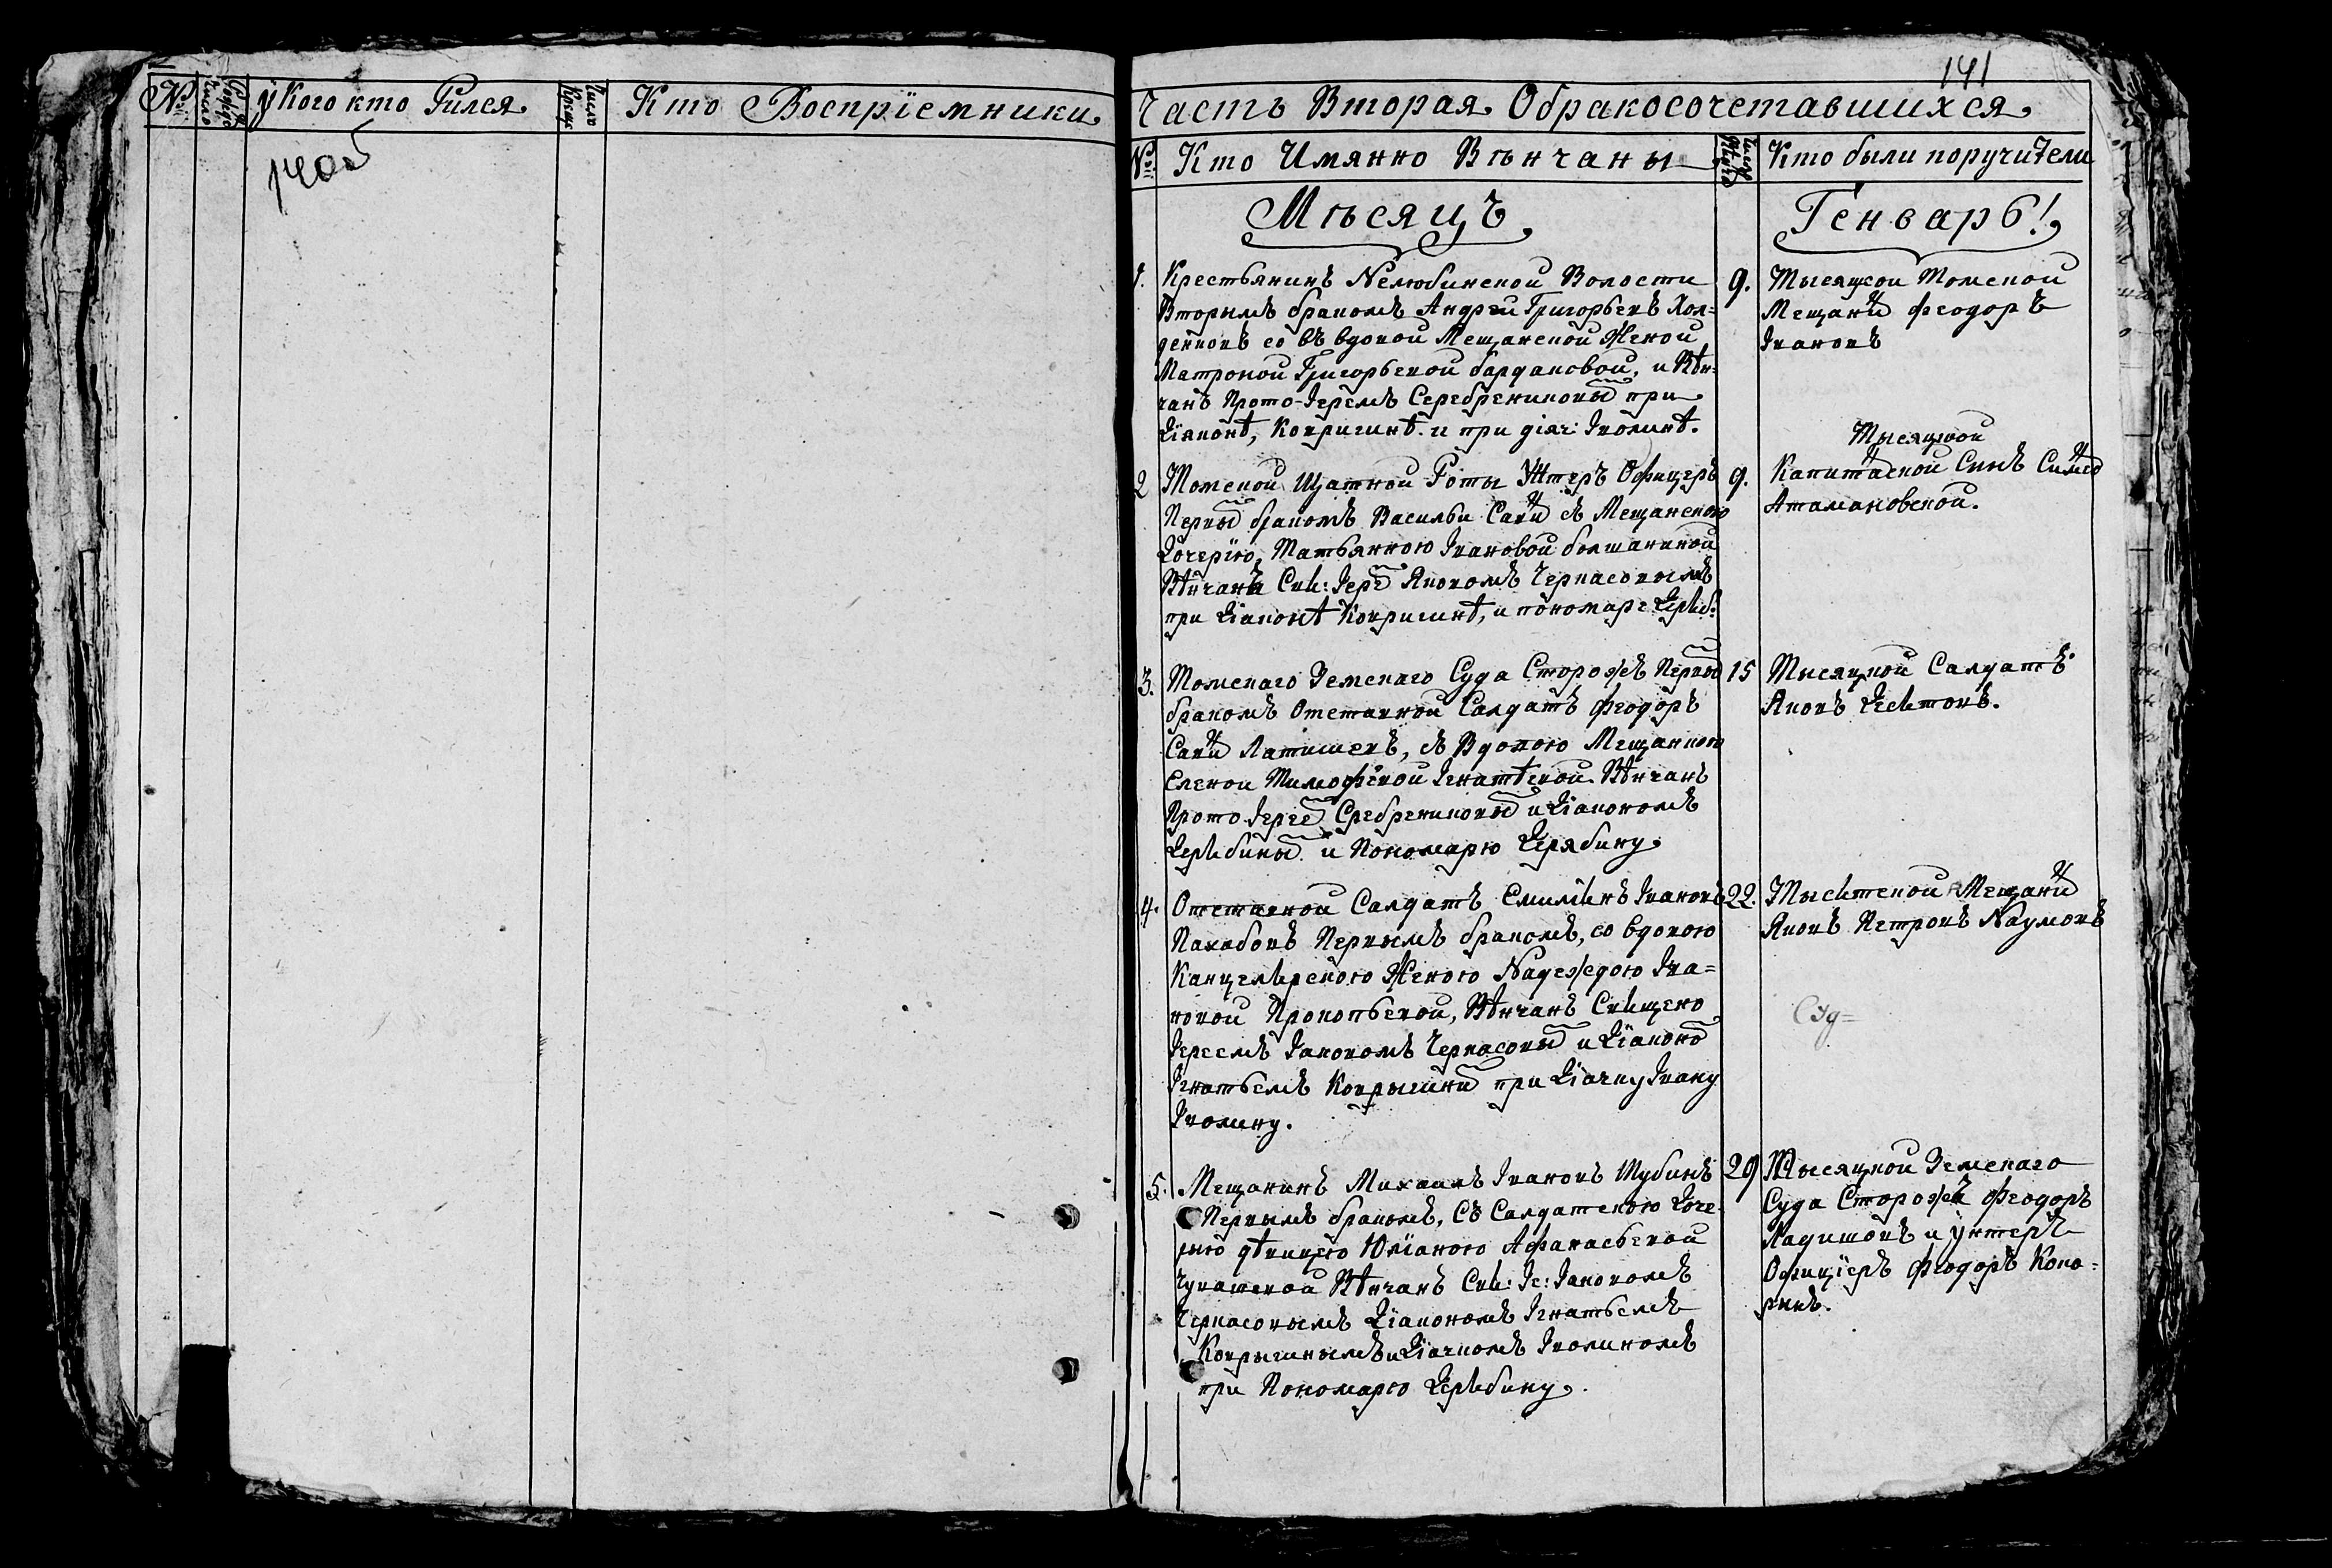 №
Число
Рожде
У Кого кто Родился
Число
Креще
Кто Воспрїемники
140об
141
Часть Вторая Обракосочетавшихся
№
Кто Имянно Вѣнчаны
Число
Кто были поручители
Мѣсяцъ
Генварь!
1. Крестьянинъ Нелюбинской Волости
Вторымъ бракомъ Андреи Григорьевъ Хол=
деиновъ со въ вдовой Мещанской Женой
Матроной Григорьевой бардаковой, и Вѣн=
чанъ Прото-Іереемъ Серебрениковы при
Дїяконѣ, Ковригинѣ. и при діяч: Іволинѣ.
9. Тысяцкой Томской
Мещани Феодоръ
Ивановъ
2 Томской Штатной Роты Унтеръ Офицеръ
Первы бракомъ Василеи Сави съ Мещанскою
Дочерїю, Татьянною Ивановой болтаниной
Вѣнчаны Свя: Іере Яковомъ Черкасовымъ
при Діаконѣ Ковригинѣ, и пономарѣ Деряб:
9.
Тысяцкой
Капитаской Сынъ Симео
Атамановской.
3. Томскаго Земскаго Суда Сторожъ Первы
бракомъ Отставной Салдатъ Феодоръ
Сави Латышевъ, съ Вдовою Мещанкою
Еленой Тимофѣевой Игнатѣевой Вѣнчанъ
Прото Іерее Сребрениковы и Діакономъ
Дерябины и Пономарю Дерябину.
15 Тысяцкой Салдатъ
Яковъ Десятовъ.
4. Отставной Салдатъ Емилїянъ Ивановъ
Палабовъ Первымъ бракомъ, со вдовою
Канцелярскою Женою Надеждою Ива=
новой Прокопьевой, Вѣнчанъ Священо
Іереемъ Іаковомъ Черкасовы и Діаконо
Игнатьемъ Коврыгины при Діячку Ивану
Іволину.
22. Тысятской Мещани
Яковъ Петровъ Наумовъ
Суд=
5. Мещанинъ Михаилъ Ивановъ Шубинъ
Первымъ бракомъ, Съ Салдатскою Доче
рью дѣвицею Юліаною Афанасьевой
Чукаевой Вѣнчанъ Свя: Іе: Іаковомъ
Черкасовымъ Діакономъ Игнатьемъ
Коврыгинымъ и Діячкомъ Іволиномъ
при Пономарю Дерябину.
29 Тысяцкой Земскаго
Суда Сторожъ Феодоръ
Ладишовъ и унтеръ
Офицїеръ Феодоръ Коко=
ринъ.